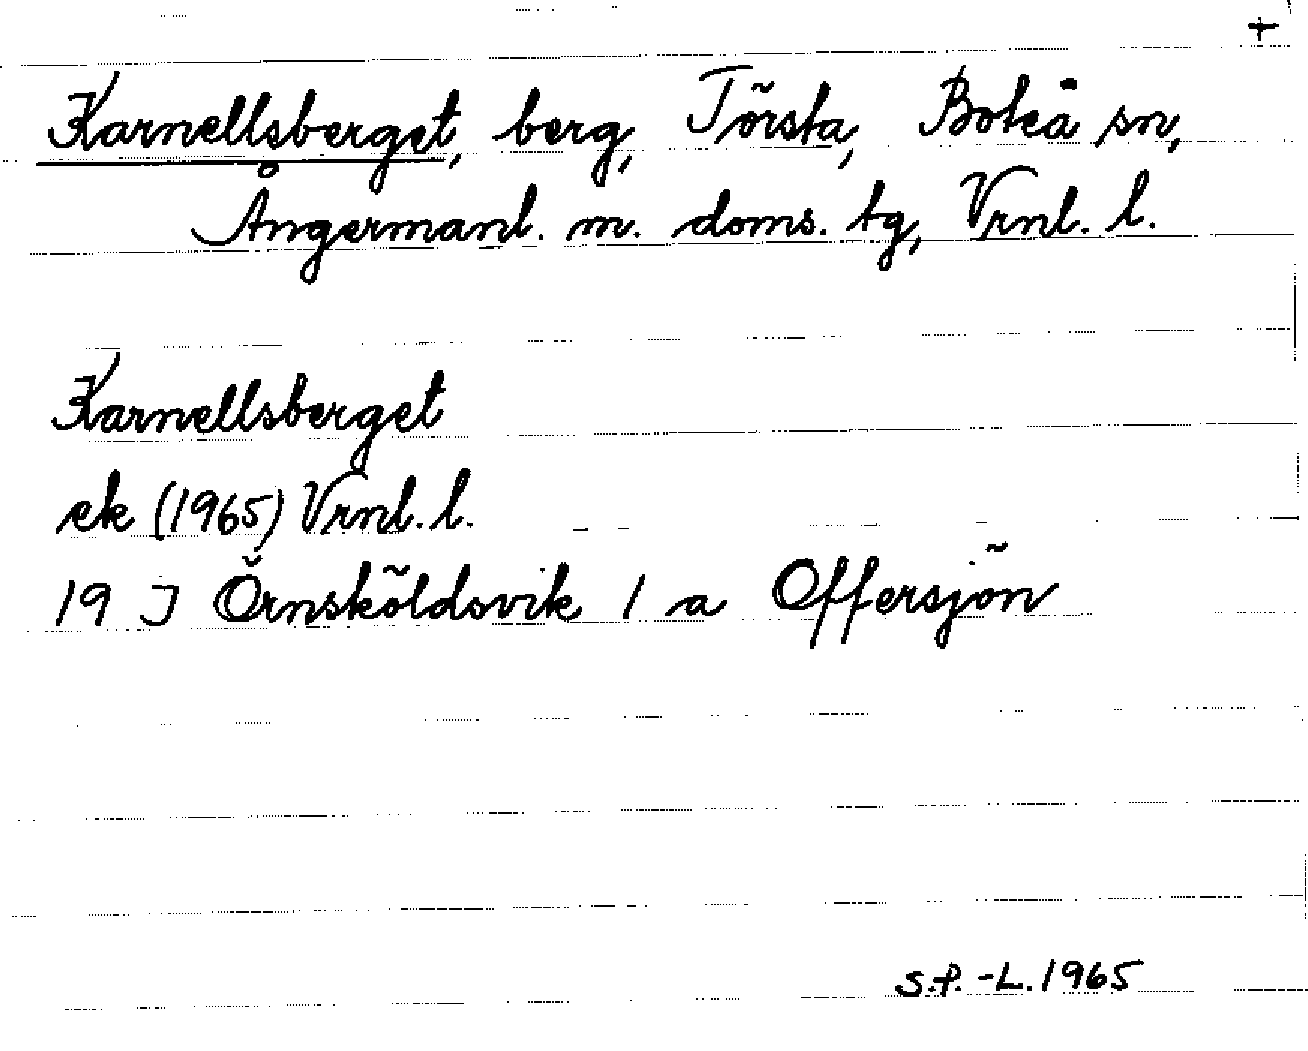 +
Karnellsberget, berg, Törsta, Boteå sn,
Ångermanl. m. doms. tg, Vrnl. l.
Karnellsberget
ek (1965) Vrnl. l.
19 J Örnsköldsvik 1 a Offersjön
S.P.-L. 1965